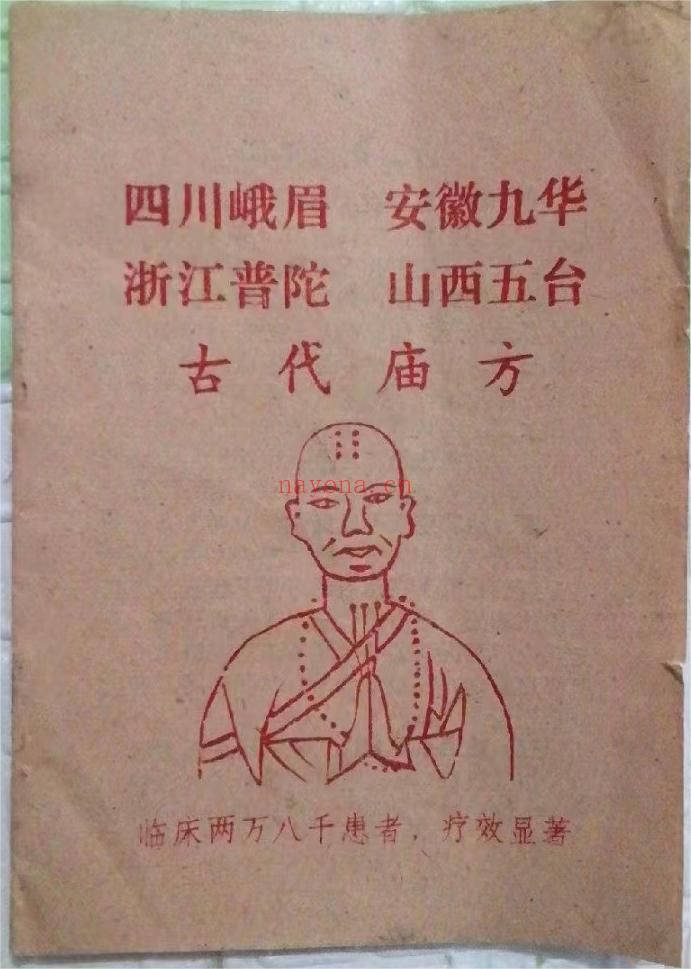 四川峨眉 安徽九华
浙江普陀 山西五台
古代庙方
nayona.cn
临床两万八千患者，疗效显著